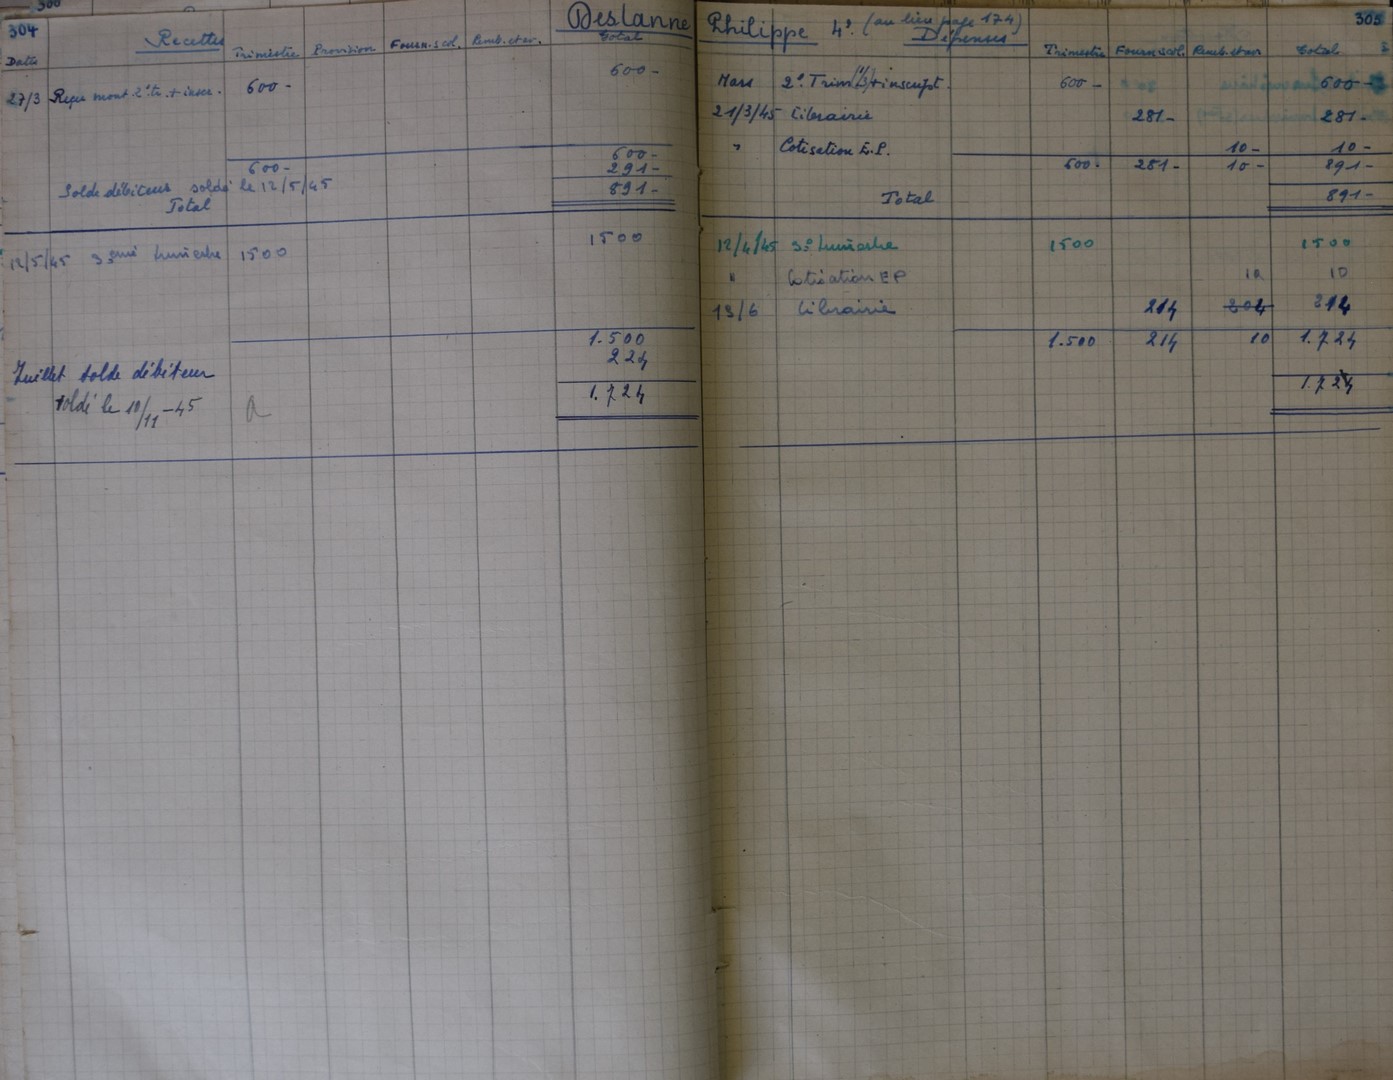 304
Deslanne
Recettes
Date Trimestre Provision Fourn. scol. Remb. et av. Total
27/3 Reçu mont 2e tr. + inscr. 600 - 600 -
600 - 600 -
291 -
Solde débiteur soldé le 12/5/45
Total 891 -
12/5/45 3ème trimestre 1500 1500
1.500
Juillet solde débiteur 224
soldé le 10/11 - 45 a 1.724
305
Philippe 4e (au lieu page 174)
Dépenses
Trimestre Fourn. scol. Remb. et av. Total
Mars 2e Trim + inscript. 600 - 600 -
21/3/45 Librairie 281 - 281 -
" Cotisation E.P. 10 - 10 -
600 - 281 - 10 - 891 -
Total 891 -
12/4/45 3e trimestre 1500 1500
" Cotisation EP 10 10
13/6 Librairie 214 204 214
1.500 214 10 1.724
1.724